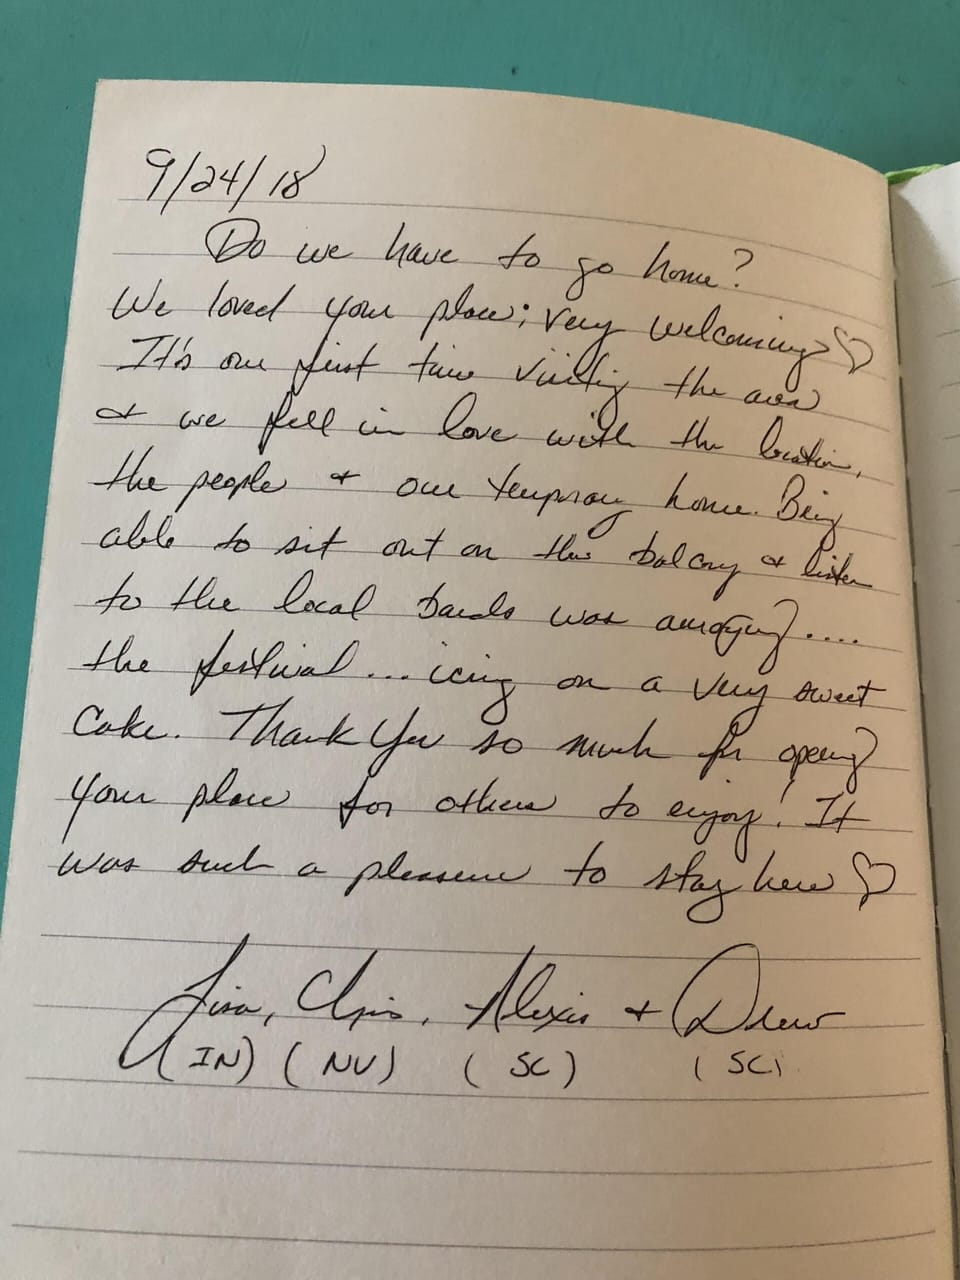 9/24/18
Do we have to go home?
We loved your place; very welcoming ♡
It's our first time visiting the area
& we fell in love with the location,
the people & our temporary home. Being
able to sit out on the balcony & listen
to the local bands was amazing....
the festival... icing on a very sweet
cake. Thank you so much for opening
your place for others to enjoy! It
was such a pleasure to stay here ♡
Lisa, Chris, Alexis & Drew
(IN) (NV) (SC) (SC)